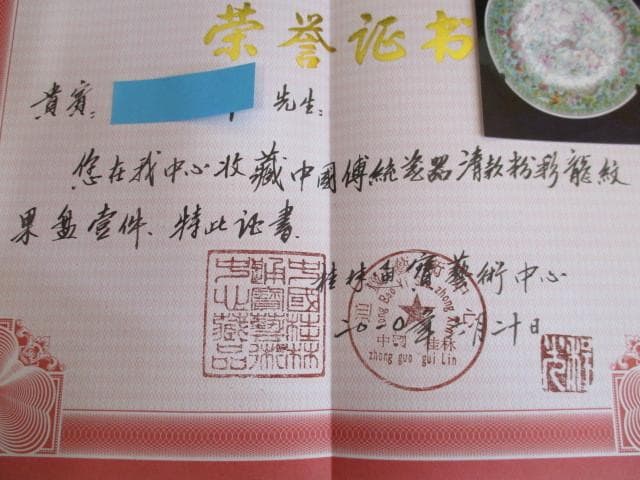 荣誉证书
貴賓: 先生:
您在我中心收藏中國傳統瓷器清款粉彩龍紋
果盤壹件、特此证書.
桂林 寶藝術中心
二0一0年 月二十日
中國桂林
寶藝術
中心藏品
中国 桂林
zhong guo gui Lin